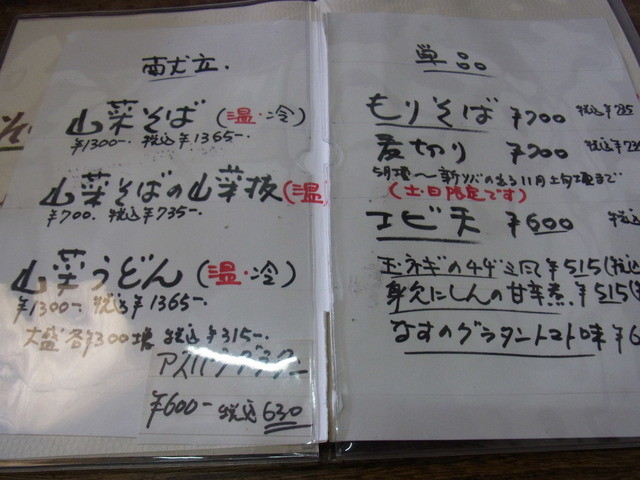 献立.
山菜そば (温・冷)
¥1300-. 税込¥1365-.
山菜そばの山菜抜(温
¥700. 税込¥735-.
山菜うどん(温・冷)
¥1300- 税込¥1365-.
大盛各¥300増 税込¥315-.
アスパラグラタン
¥600- 税込630
単品
もりそば ¥700 税込¥735
麦切り ¥700 税込¥73
5月頃〜新ソバの出る11月上旬頃まで
(土・日限定です)
エビ天 ¥600 税込
玉ネギの ¥515(税込
身欠にしんの甘辛煮.¥515(
なすのグラタントマト味 ¥6